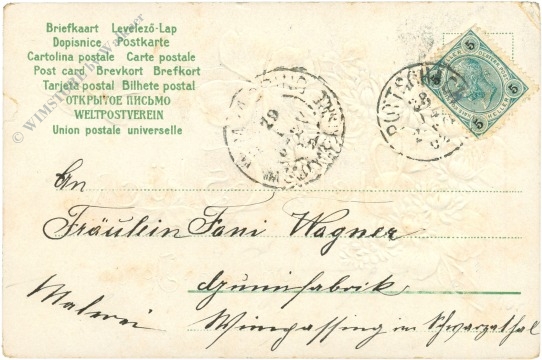 Briefkaart Levelező-Lap
Dopisnice Postkarte
Cartolina postale Carte postale
Post card Brevkort Brefkort
Tarjeta postal Bilhete postal
ОТКРЫТОЕ ПИСЬМО
WELTPOSTVEREIN
Union postale universelle
5 5
5 HELLER 5
PÖRTSCHACH
An
Fräulein Fani Wagner
Gumifabrik
Malerei Wimpassing im Schwarzathal